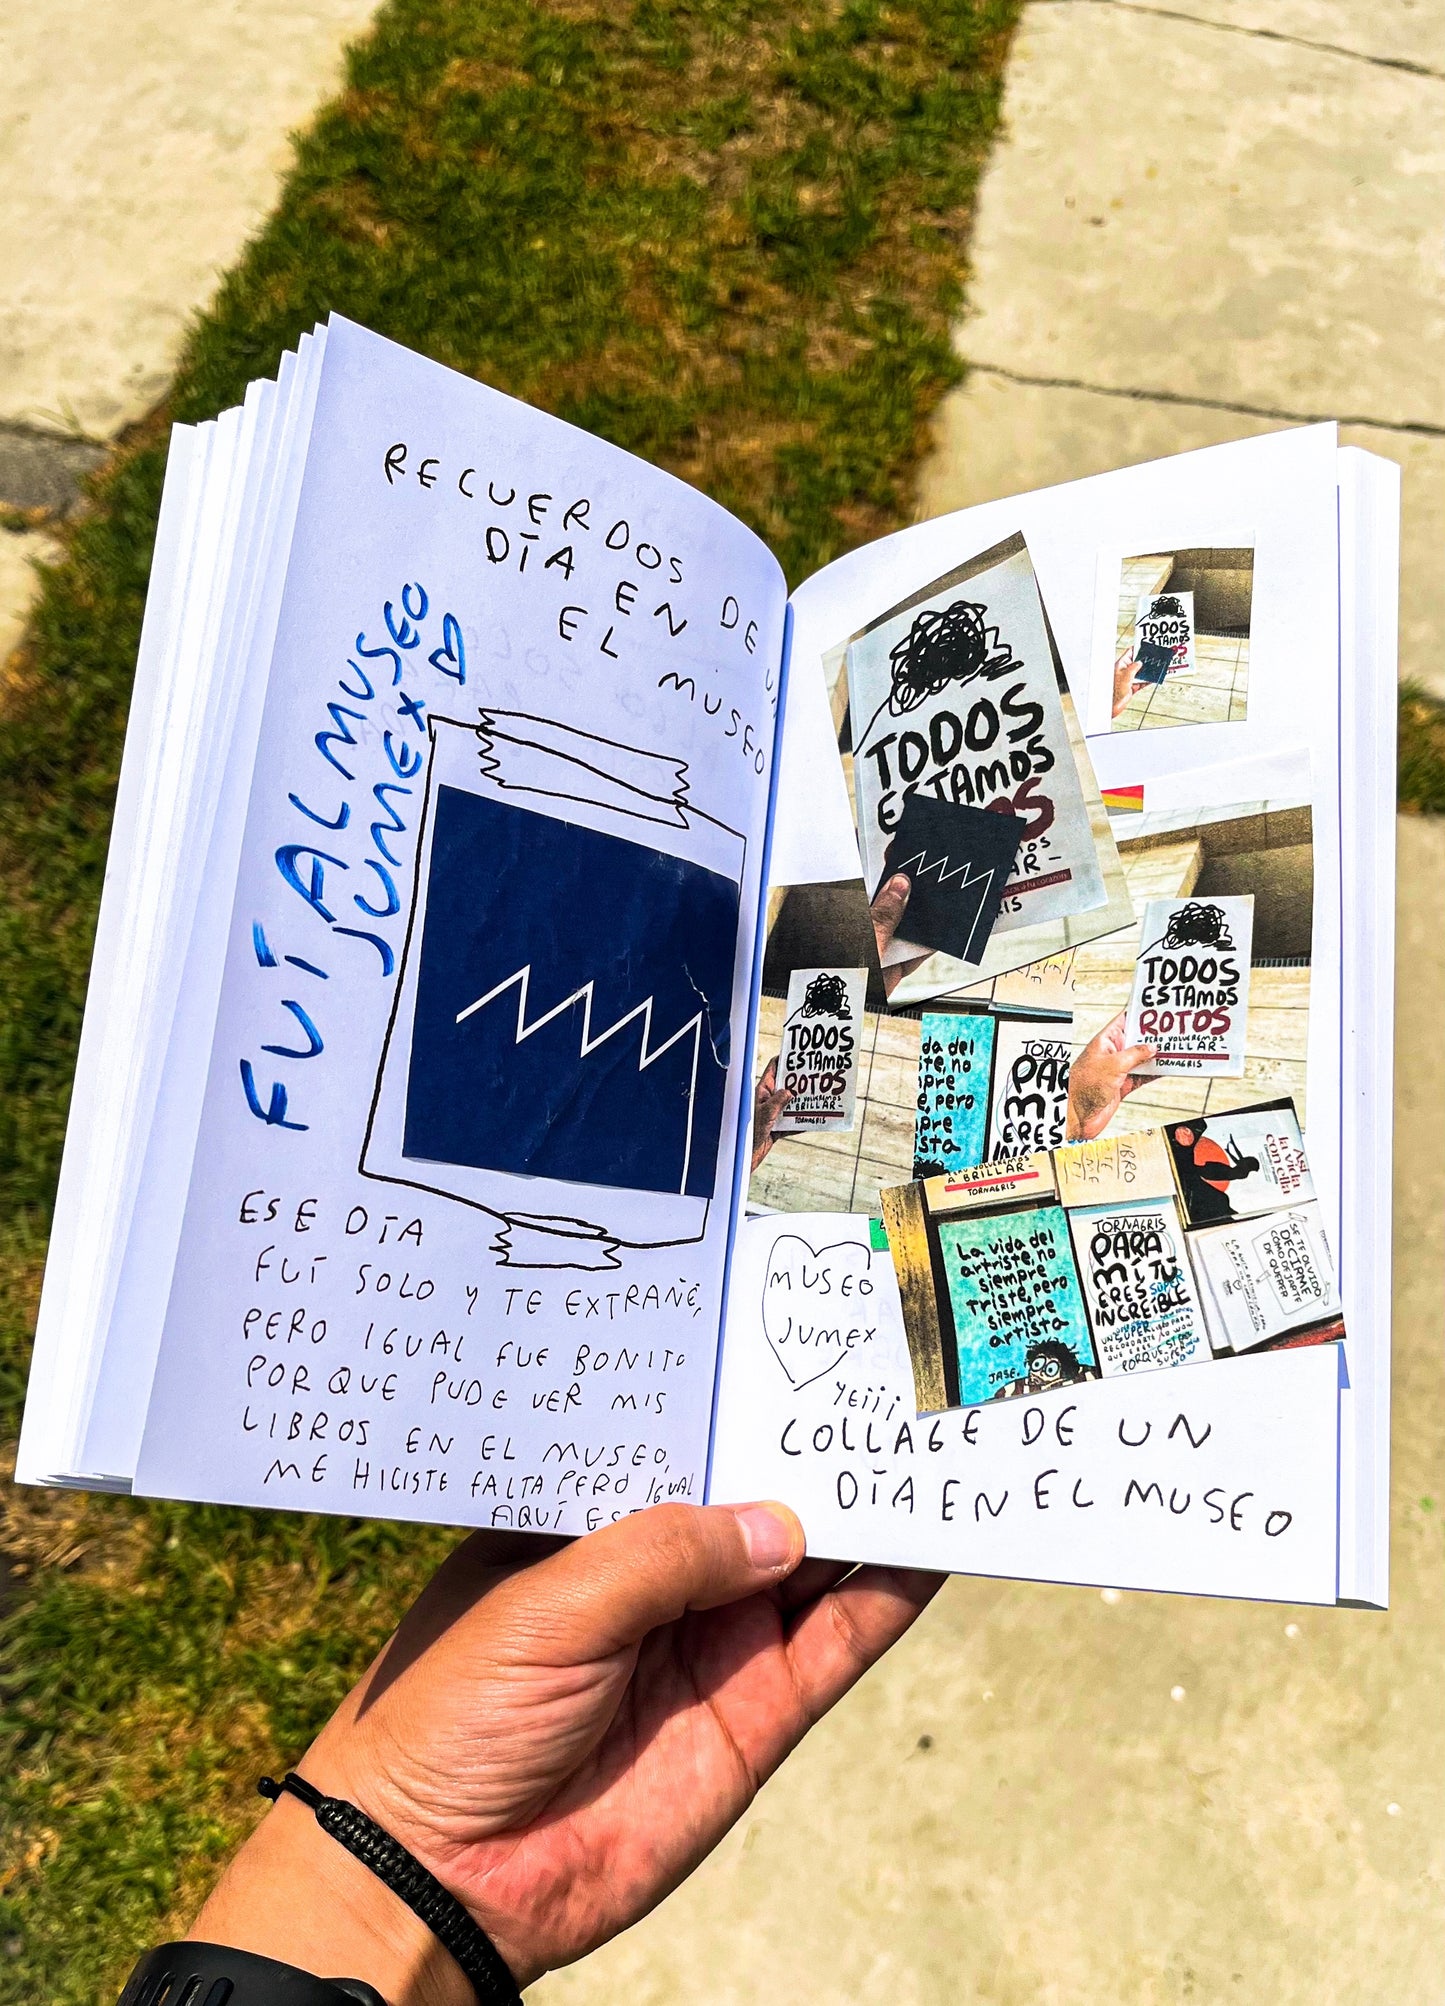 RECUERDOS DE UN
DÍA EN
EL MUSEO
FUÍ AL MUSEO
JUMEX
ESE DÍA
FUÍ SOLO Y TE EXTRAÑÉ,
PERO IGUAL FUE BONITO
PORQUE PUDE VER MIS
LIBROS EN EL MUSEO,
ME HICISTE FALTA PERO IGUAL
AQUÍ
TODOS
ESTAMOS
OS
AR -
IS
TODOS
ESTAMOS
TODOS
ESTAMOS
ROTOS
- PERO VOLVEREMOS
A BRILLAR -
TORNAGRIS
TODOS
ESTAMOS
ROTOS
- PERO VOLVEREMOS
A BRILLAR -
TORNAGRIS
da del
te, no
pre
e, pero
pre
sta
TORNA
PAR
MÍ
ERES
INCRE
PERO VOLVEREMOS
A BRILLAR -
TORNAGRIS
IBRO
Así
la vida
con ella
La vida del
artriste, no
siempre
triste, pero
siempre
artista
JASE.
TORNAGRIS
PARA
MÍ TÚ
ERES SUPER
INCREÍBLE
PORQUE SÍ
SUPER
WOW
SE TE OLVIDÓ
DECIRME
CÓMO DEJARTE
DE QUERER
MUSEO
JUMEX
YEIII
COLLAGE DE UN
DÍA EN EL MUSEO